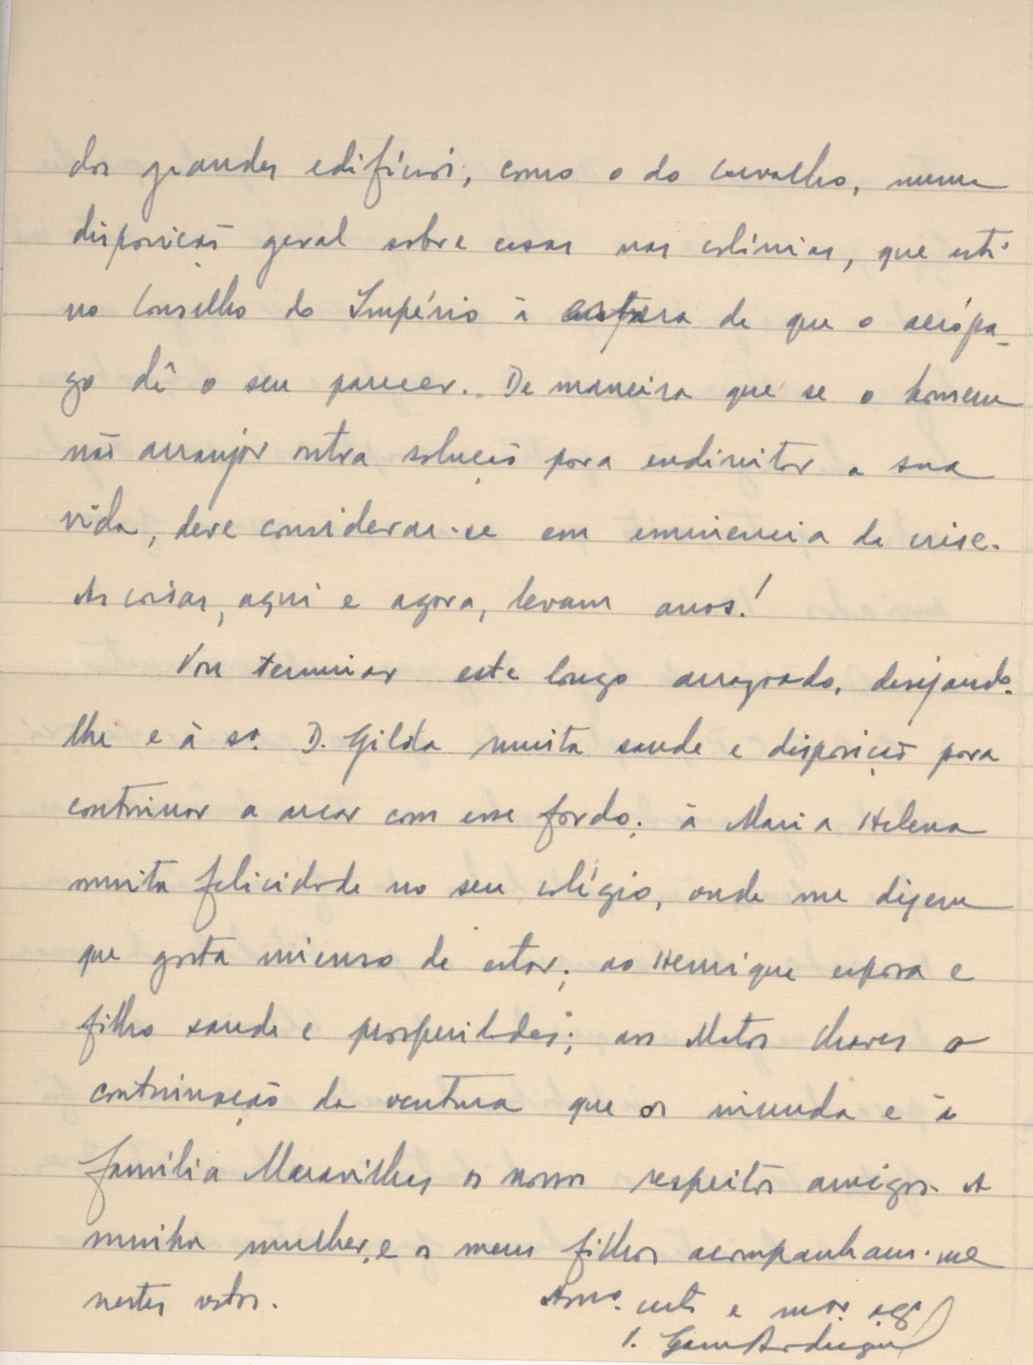 dos grandes edifícios, como o do Carvalho, numa
disposição geral sobre casas nas colónias, que está
no Conselho do Império à espera de que o aerópa-
go dê o seu parecer. De maneira que se o homem
não arranjar outra solução para endireitar a sua
vida, deve considerar-se em eminencia de crise.
As coisas, aqui e agora, levam anos!
Vou terminar este longo arrazoado, desejando-
lhe e à sra. D. Gilda muita saude e disposição para
continuar a arcar com esse fardo; à Maria Helena
muita felicidade no seu colégio, onde me dizem
que gosta imenso de estar; ao Henrique esposa e
filho saude e prosperidades; aos Matos Chaves a
continuação da ventura que os inunda e à
familia Maravilhas os nossos respeitos amigos. A
minha mulher, e os meus filhos acompanham-me
nestes votos.
Amo. e